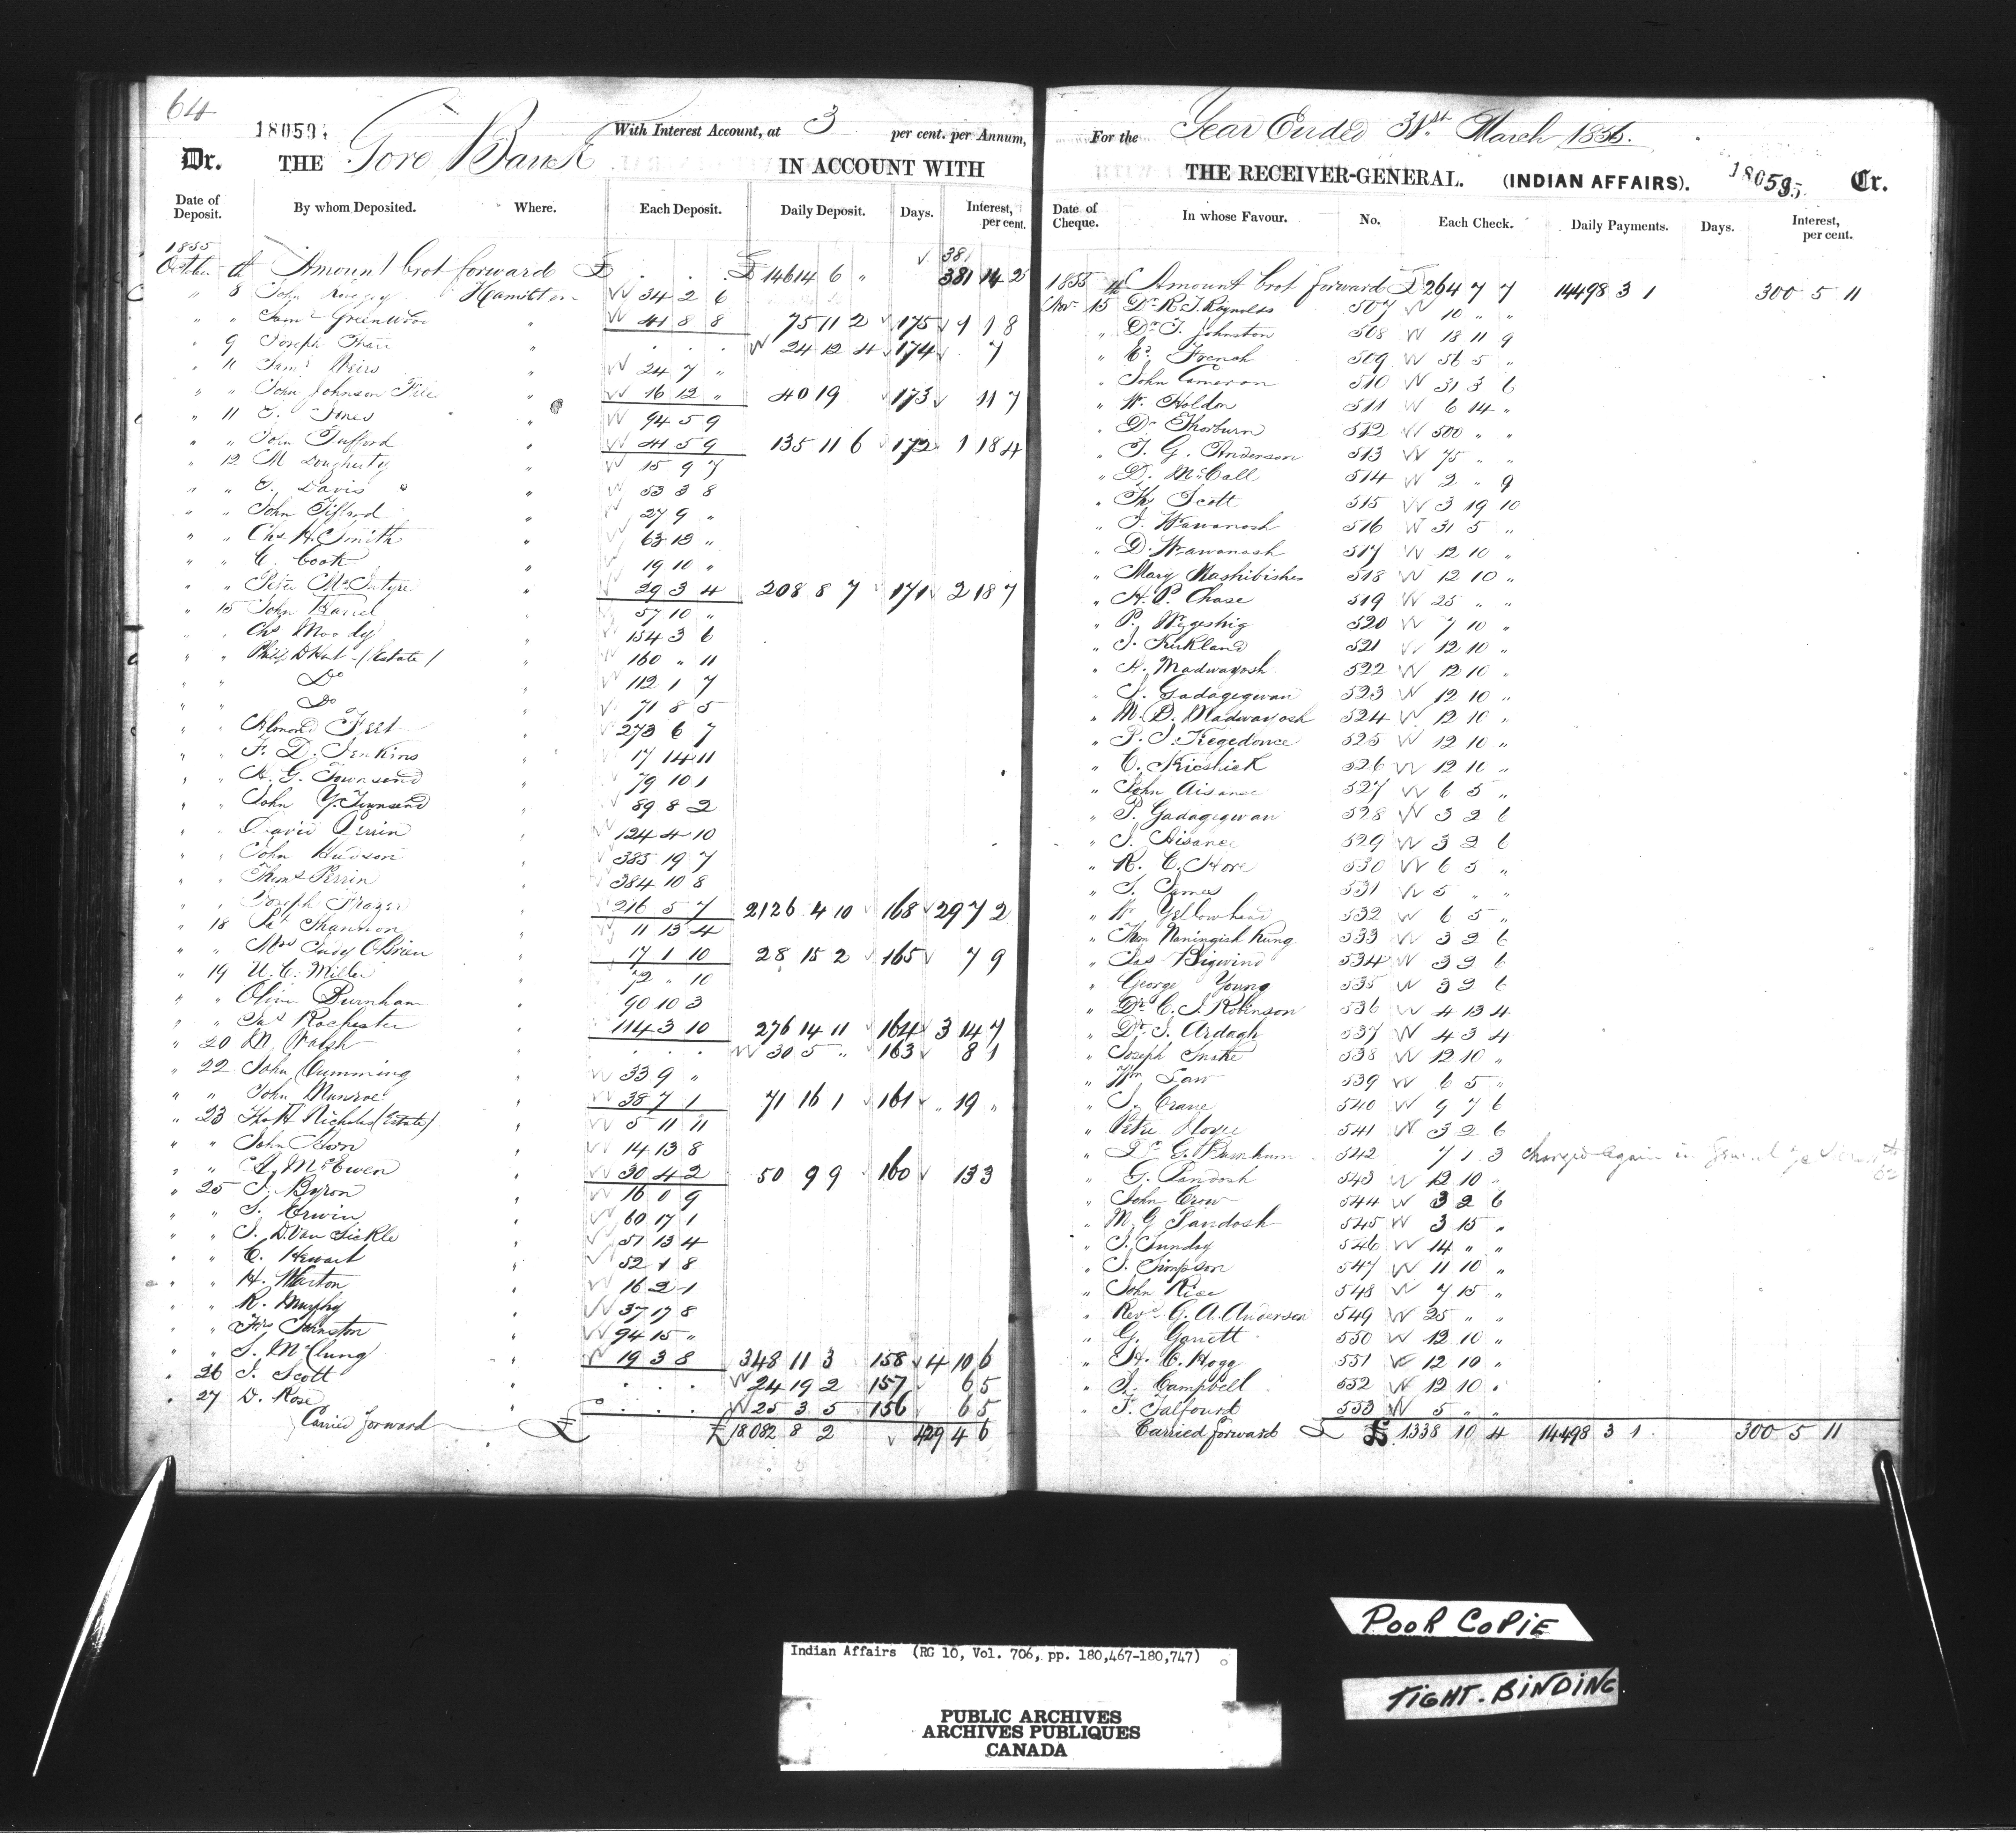 64
180594 With Interest Account, at 3 per cent. per Annum,
Dr. THE Gore Bank IN ACCOUNT WITH
Date of Deposit. By whom Deposited. Where. Each Deposit. Daily Deposit. Days. Interest, per cent.
1855 381
October Amount brot forward £ . . . £ 14614 6 " 381 14 2
" 8 John Hamilton 34 2 6
" " Saml Greenwood " 41 8 8 75 11 2 175 1 1 8
" 9 Joseph " . . . 24 12 4 174 7
" 11 Saml " 24 7 "
" " John Johnson " 16 12 " 40 19 173 11 7
" 11 Jones " 94 5 9
" " John Tufford " 41 5 9 135 11 6 172 1 18 4
" 12 M Dougherty " 15 9 7
" " Davis " 53 3 8
" " John Tifford " 27 9 "
" " Chs H. Smith " 63 13 "
" " C. Cook " 19 10 "
" " Peter McIntyre " 29 3 4 208 8 7 171 2 18 7
" 15 John " 57 10 "
" " Chs Moody " 154 3 6
" " Philip (Estate) " 160 " 11
" " Do " 112 1 7
" " Do " 71 8 5
" " " 273 6 7
" " F. D. Jenkins " 17 14 11
" " H. G. Townsend " 79 10 1
" " John Y. Townsend " 89 8 2
" " David Perrin " 124 4 10
" " John Hudson " 385 19 7
" " Thoms Perrin " 384 10 8
" " Joseph Frazer " 216 5 7 2126 4 10 168 29 7 2
" 18 Pat Shannon " 11 13 4
" " Mrs Judy O'Brien " 17 1 10 28 15 2 165 7 9
" 19 U. C. Miller " 72 " 10
" " Oliver Burnham " 90 10 3
" " Jas Rochester " 114 3 10 276 14 11 164 3 14 7
" 20 M. Walsh " . . . 30 5 " 163 8 1
" 22 John Cumming " 33 9 "
" " John Munroe " 38 7 1 71 16 1 161 " 19 "
" 23 Nicholas (Estate) " 5 11 11
" " John " 14 13 8
" " A. McEwen " 30 4 2 50 9 9 160 13 3
" 25 J. Byron " 16 0 9
" " J. Erwin " 60 17 1
" " J. D. Van Sickle " 51 13 4
" " C. Hewart " 52 1 8
" " H. Warton " 16 2 1
" " R. Murphy " 37 17 8
" " Johnston " 94 15 "
" " S. McClung " 19 3 8 348 11 3 158 4 10 6
" 26 J. Scott " . . . 24 19 2 157 6 5
" 27 D. Rose " . . . 25 3 5 156 6 5
Carried forward £ £ 18082 8 2 429 4 6
For the Year Ended 31st March 1856.
THE RECEIVER-GENERAL. (INDIAN AFFAIRS). 180595 Cr.
Date of Cheque. In whose Favour. No. Each Check. Daily Payments. Days. Interest, per cent.
1855 Amount brot forward £ 264 7 7 14498 3 1 300 5 11
Nov 15 Dr R. J. Reynolds 507 10 " "
" Dr J. Johnston 508 18 11 9
" French 509 56 5 "
" John Cameron 510 31 3 6
" W. Holden 511 6 14 "
" Dr Thorburn 512 500 " "
" T. G. Anderson 513 75 " "
" D. McCall 514 2 " 9
" Th Scott 515 3 19 10
" J. Wawanosh 516 31 5 "
" D. Wawanosh 517 12 10 "
" Mary Nashibishes 518 12 10 "
" H. P. Chase 519 25 " "
" P. Wegeshig 520 7 10 "
" J. Kirkland 521 12 10 "
" A. Madwayosh 522 12 10 "
" J. Gadagegwan 523 12 10 "
" M. D. Madwayosh 524 12 10 "
" P. J. Kegedonce 525 12 10 "
" C. Kieshick 526 12 10 "
" John Aisance 527 6 5 "
" P. Gadagegwan 528 3 2 6
" J. Aisance 529 3 2 6
" R. C. Hore 530 6 5 "
" J. James 531 5 " "
" W. Yellowhead 532 6 5 "
" Thom Naningish Kung 533 3 2 6
" Jas Bigwind 534 3 2 6
" George Young 535 3 2 6
" Dr C. J. Robinson 536 4 13 4
" Dr J. Ardagh 537 4 3 4
" Joseph Snake 538 12 10 "
" Wm Law 539 6 5 "
" J. Crane 540 9 7 6
" Peter 541 3 2 6
" G. Burnham 542 7 1 3 charged again in
" G. Pandosh 543 12 10 "
" John Crow 544 3 2 6
" M. G. Pandosh 545 3 15 "
" J. Sunday 546 14 " "
" J. Simpson 547 11 10 "
" John Rice 548 7 15 "
" Revd G. A. Anderson 549 25 " "
" G. Garrett 550 12 10 "
" H. C. Hogg 551 12 10 "
" J. Campbell 552 12 10 "
" F. Talfourd 553 5 " "
Carried forward £ £ 1338 10 4 14498 3 1 300 5 11
POOR COPIE
TIGHT. BINDING
Indian Affairs (RG 10, Vol. 706, pp. 180,467-180,747)
PUBLIC ARCHIVES
ARCHIVES PUBLIQUES
CANADA